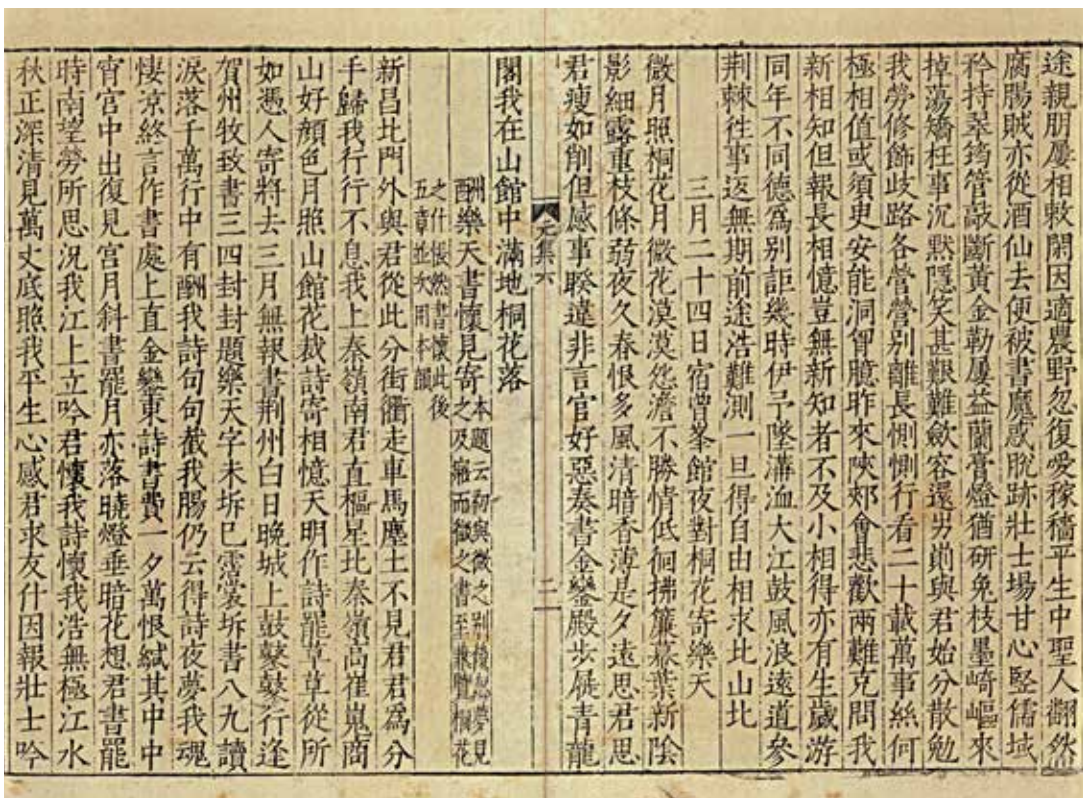 途親朋屢相敕閑因適農野忽復愛稼穡平生中聖人翻然
腐腸賊亦從酒仙去便被書魔惑脫跡壯士場甘心竪儒域
矜持翠筠管敲斷黃金勒屢益蘭膏燈猶研兔枝墨崎嶇來
掉蕩矯枉事沉默隱笑甚艱難斂容還屴崱與君始分散勉
我勞修飾歧路各營營別離長惻惻行看二十載萬事絲何
極相值或須臾安能洞胷臆昨來陝郊會悲歡兩難克問我
新相知但報長相憶豈無新知者不及小相得亦有生歲游
同年不同德爲別詎幾時伊予墜溝洫大江鼓風浪遠道參
荆棘往事返無期前途浩難測一旦得自由相求北山北
三月二十四日宿曾峯館夜對桐花寄樂天
微月照桐花月微花漠漠怨澹不勝情低徊拂簾幕葉新陰
影細露重枝條弱夜久春恨多風清暗香薄是夕遠思君思
君瘦如削但感事睽違非言官好惡奏書金鑾殿步屣青龍
元集六
二
閣我在山館中滿地桐花落
酬樂天書懷見寄
本題云初與微之別後忽夢見
之及寤而微之書至兼贈桐花
之什悵然書懷此後
五章並次用本韻
新昌北門外與君從此分街衢走車馬塵土不見君君爲分
手歸我行行不息我上秦嶺南君直樞星北秦嶺高崔嵬商
山好顏色月照山館花裁詩寄相憶天明作詩罷草草從所
如憑人寄將去三月無報書荆州白日晚城上鼓鼕鼕行逢
賀州牧致書三四封封題樂天字未坼已霑裳坼書八九讀
淚落千萬行中有酬我詩句句截我腸仍云得詩夜夢我魂
悽涼終言作書處上直金鑾東詩書費一夕萬恨緘其中中
宵宮中出復見宮月斜書罷月亦落曉燈垂暗花想君書罷
時南望勞所思況我江上立吟君懷我詩懷我浩無極江水
秋正深清見萬丈底照我平生心感君求友什因報壯士吟